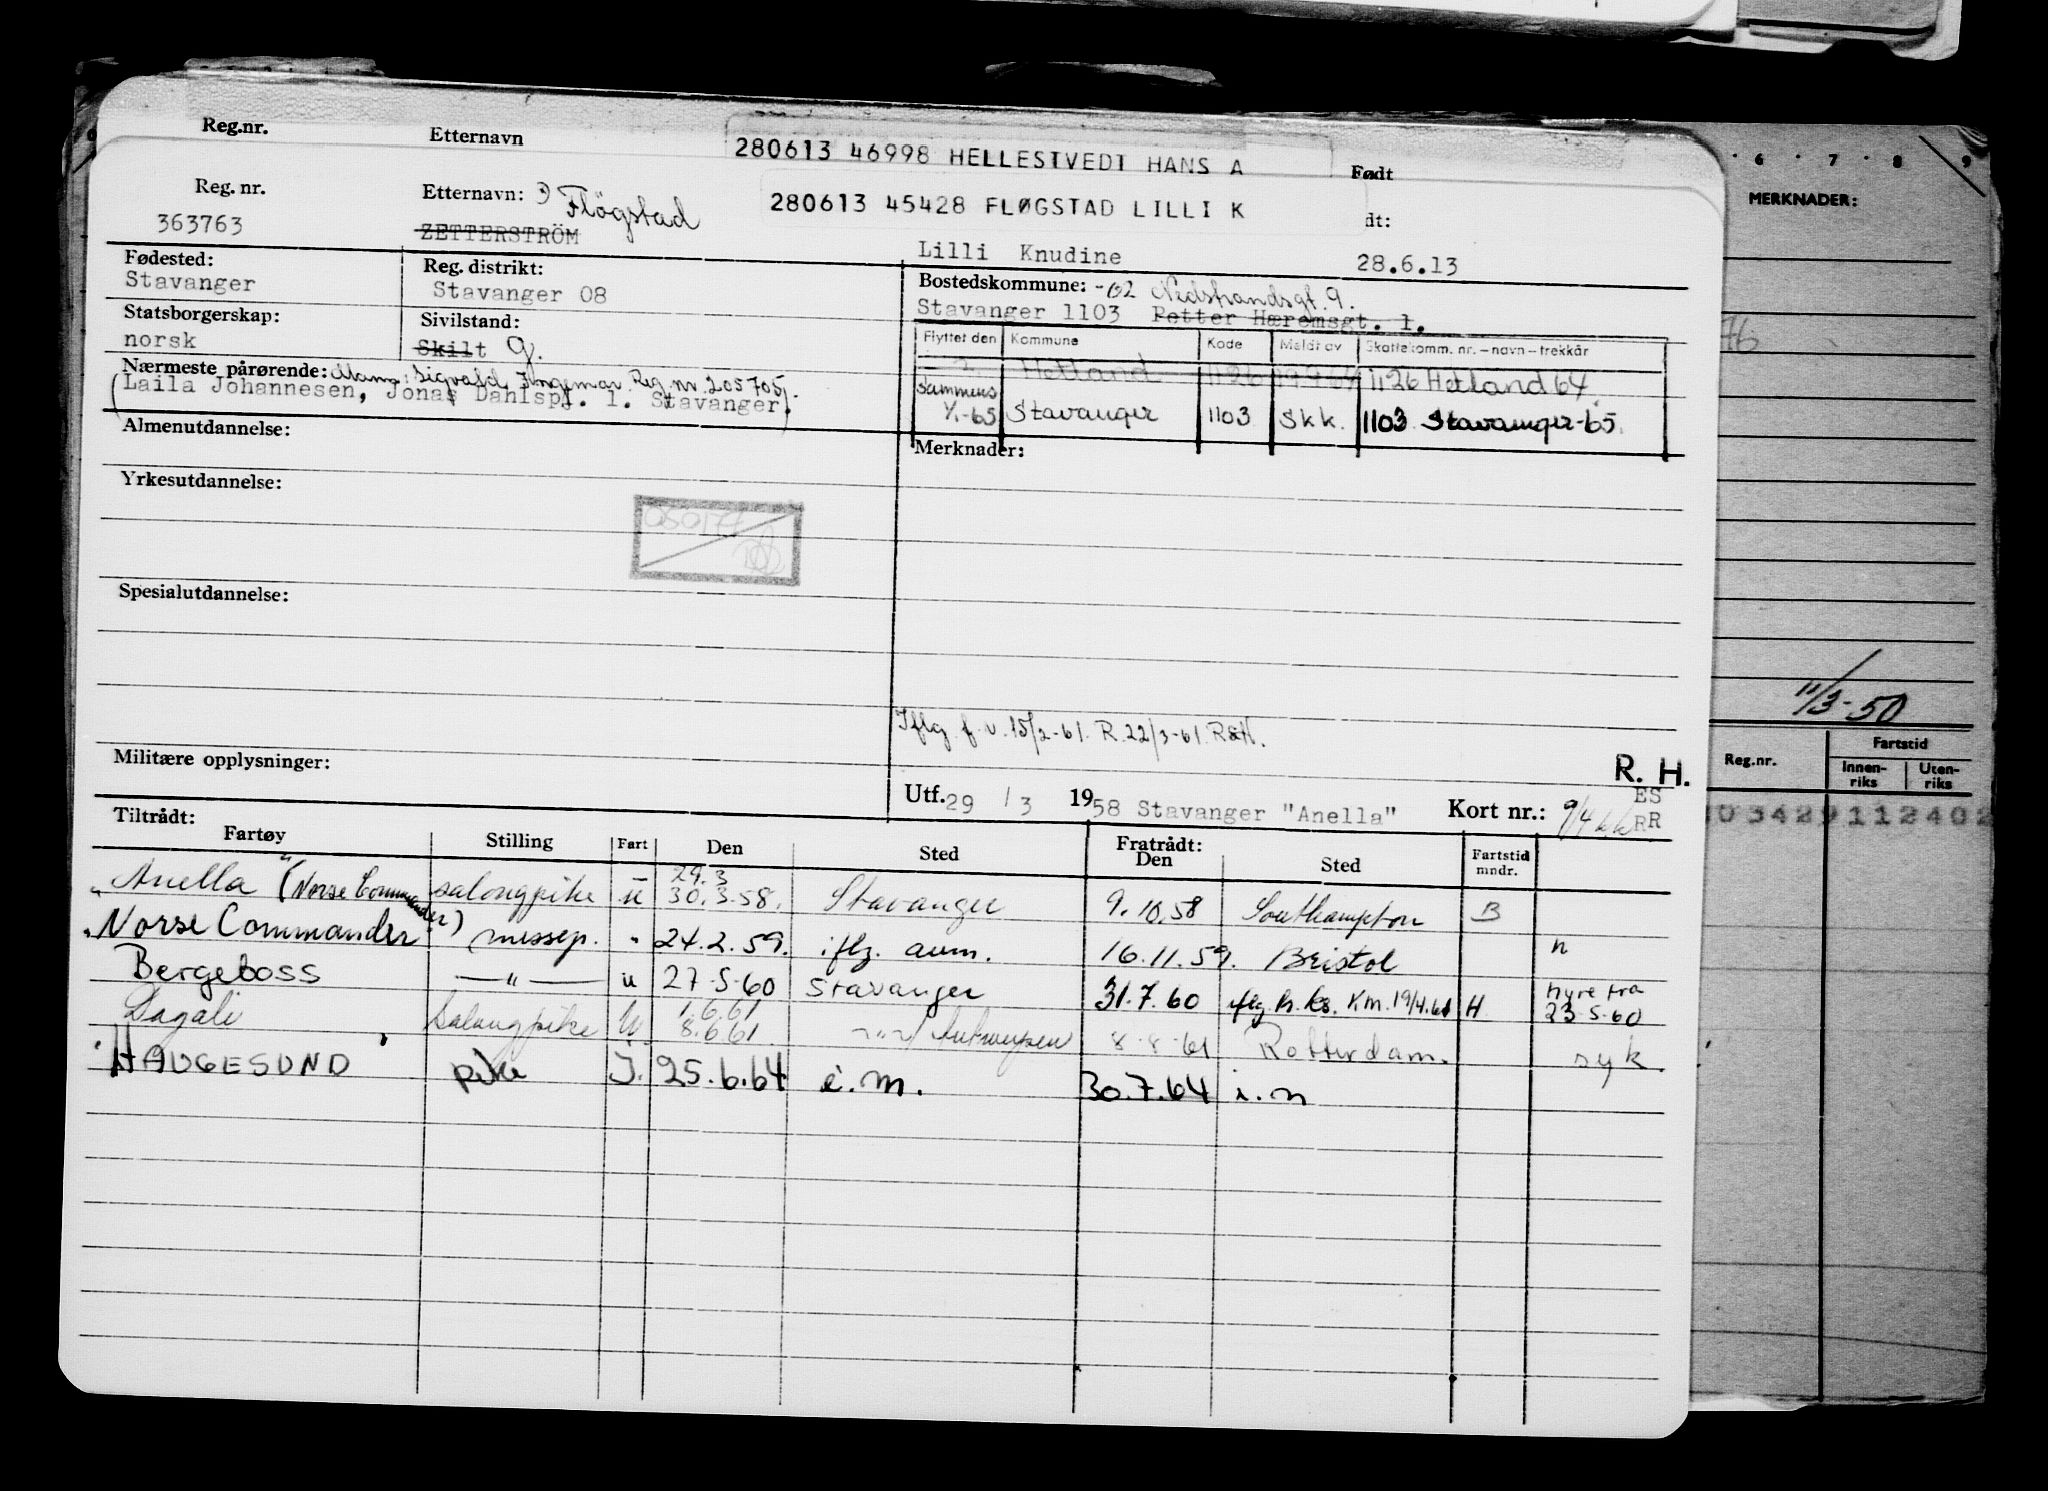 Reg.nr. Etternavn 280613 46998 HELLESTVEDT HANS A Født
Reg. nr. Etternavn: Fløgstad 280613 45428 FLØGSTAD LILLI K dt:
363763 ZETTERSTRÖM Lilli Knudine 28.6.13
Fødested: Reg. distrikt: Bostedskommune: -62 Nedstrandsgt. 9.
Stavanger Stavanger 08 Stavanger 1103 Petter Hæremsgt. 1.
Statsborgerskap: Sivilstand: Flyttet den Kommune Kode Meldt av Skattekomm. nr. – navn – trekkår
norsk Skilt g. Hetland 1126 1126 Hetland 64
Nærmeste pårørende: Mann: Sigvald Reg. nr. 205705.
(Laila Johannesen, Jonas Dahlspl. 1. Stavanger.) 1/1-65 Stavanger 1103 Skk. 1103 Stavanger-65.
Almenutdannelse: Merknader:
Yrkesutdannelse:
Spesialutdannelse:
Iflg f. v. 15/2-61. R. 22/3-61.
Militære opplysninger: R. H.
Utf. 29 / 3 1958 Stavanger "Anella" Kort nr.: ES
RR
Tiltrådt: Fratrådt:
Fartøy Stilling Fart Den Sted Den Sted Fartstid mndr.
29.3
Anella (Norse Commander) salongpike u 30.3.58. Stavanger 9.10.58 Southampton B
"Norse Commander" messep. " 24.2.59. iflg. anm. 16.11.59. Bristol n
Bergeboss — " — u 27.5.60 Stavanger 31.7.60 iflg. Km. 19/4.61 H hyre fra 23.5.60
1.6.61
Dagali Salongpike U 8.6.61 Antwerpen 8.8.61 Rotterdam. syk.
HAUGESUND pike I. 25.6.64 i.m. 30.7.64 i.n
6 . 7 . 8 9
MERKNADER:
11/3-50
Reg.nr. Fartstid
Innen-riks Uten-riks
03429112402